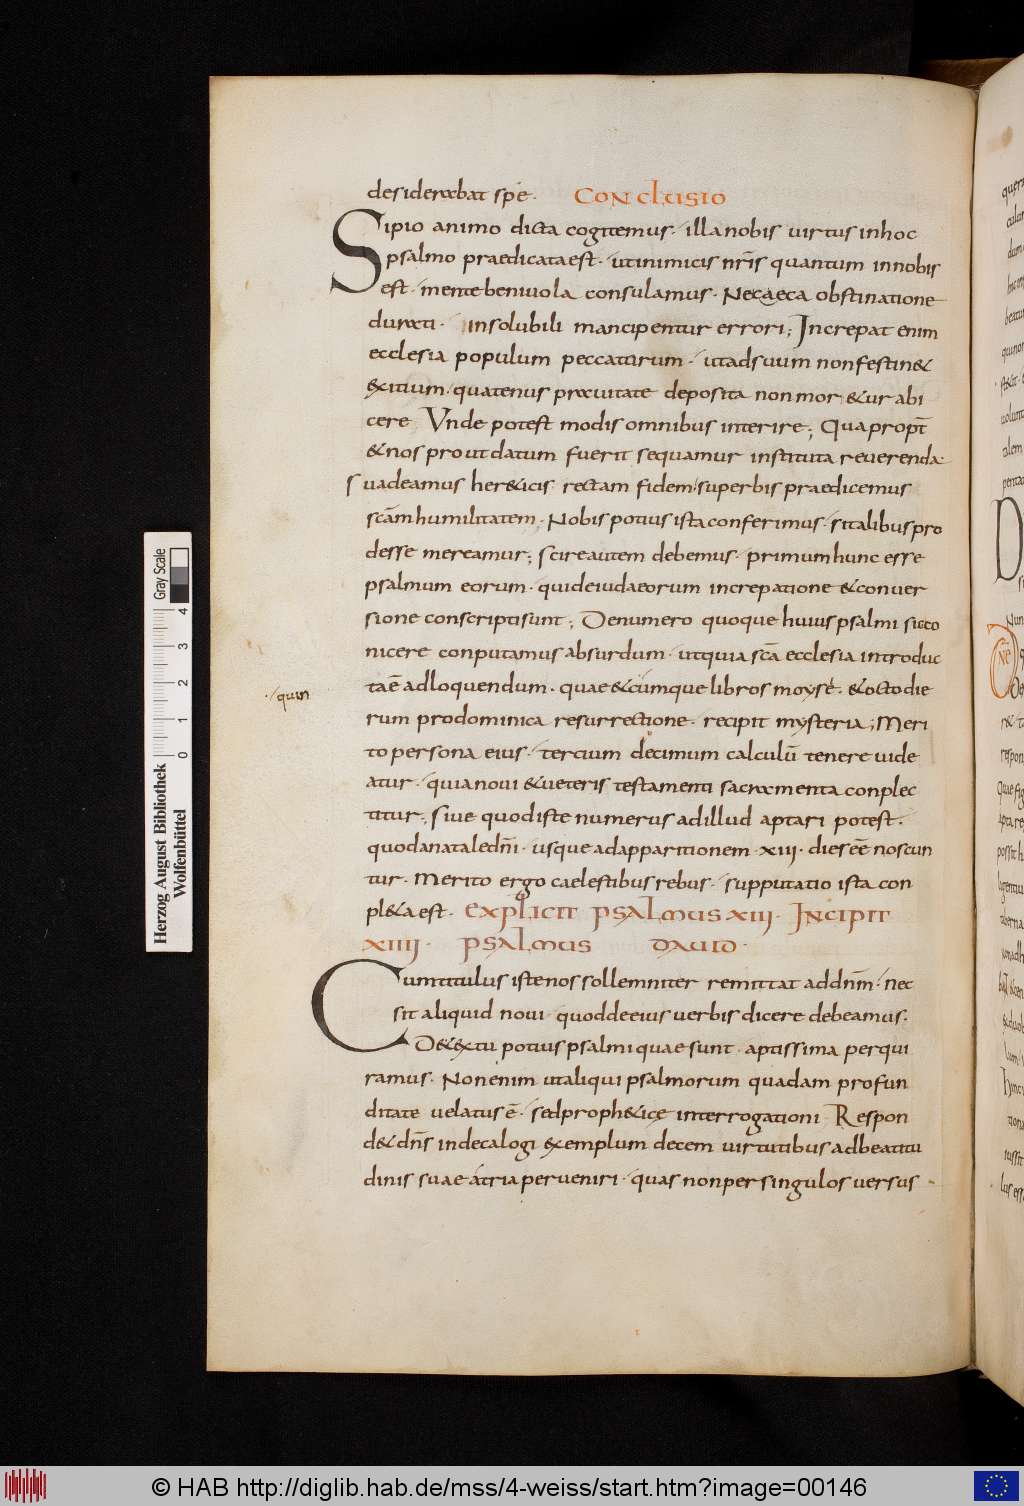 desiderabat spe. Conclusio
Sipio animo dicta cogitemus. illa nobis uirtus in hoc
psalmo praedicata est. ut inimicis nr̄is quantum in nobis
est. mente beniuola consulamus. Nec caeca obstinatione
durati. insolubili mancipentur errori; Increpat enim
ecclesia populum peccatorum. ut ad suum non festin&
exitium. quatenus prauitate deposita non mor&ur abi
cere Vnde potest modis omnibus interire; Qua propt̄
& nos prout datum fuerit sequamur instituta reuerenda.
Suadeamus her&icis rectam fidem. superbis praedicemus
sc̄am humilitatem. Nobis potius ista conferimus. si talibus pro
desse mereamur; scire autem debemus. primum hunc esse
psalmum eorum. qui de iudaeorum increpatione & conuer
sione conscripti sunt; De numero quoque huius psalmi sic co
nicere conputamus absurdum. ut quia sc̄a ecclesia introduc
ta ē ad loquendum. quae & cumque libros moyse. & octo die
·/ quin
rum pro dominica resurrectione. recipit mysteria; Meri
to persona eius. tercium decimum calculū tenere uide
atur. quia noui & ueteris testamenti sacramenta conplec
titur; Siue quod iste numerus ad illud aptari potest.
quod a natale dn̄i. usque ad apparitionem. xiii. dies eē noscun
tur. Merito ergo caelestibus rebus. supputatio ista con
pl&a est. Explicit psalmus xiii. Incipit
xiiii. psalmus dauid.
Cum titulus iste nos sollemniter remittat ad dn̄m. nec
sit aliquid noui. quod de eius uerbis dicere debeamus.
De textu potius psalmi quae sunt. aptissima perqui
ramus. Non enim ut aliqui psalmorum quadam profun
ditate uelatus ē. sed proph&icę interrogationi Respon
d& dn̄s in decalogi exemplum decem uirtutibus ad beatitu
dinis suae atria perueniri. quas non per singulos uersus
Gray Scale
4 3 2 1 0
Herzog August Bibliothek
Wolfenbüttel
© HAB http://diglib.hab.de/mss/4-weiss/start.htm?image=00146